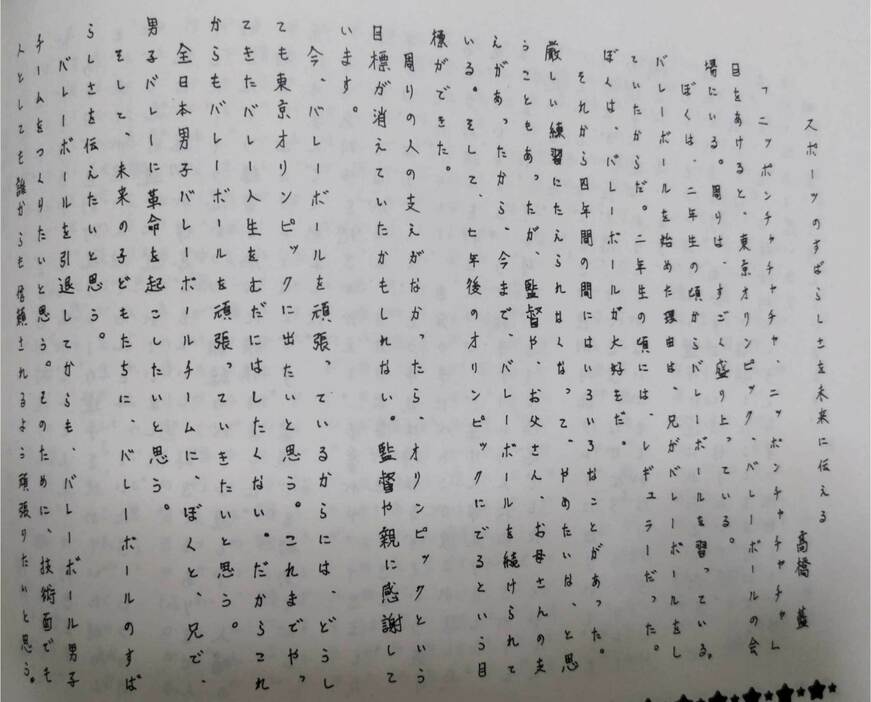 スポーツのすばらしさを未来に伝える
髙橋　藍
「ニッポンチャチャチャ、ニッポンチャチャチャ」
目をあけると、東京オリンピック、バレーボールの会
場にいる。周りは、すごく盛り上っている。
ぼくは、二年生の頃からバレーボールを習っている。
バレーボールを始めた理由は、兄がバレーボールをし
ていたからだ。二年生の頃には、レギュラーだった。
ぼくは、バレーボールが大好きだ。
それから四年間の間にはいろいろなことがあった。
厳しい練習にたえられなくなって、やめたいな、と思
うこともあったが、監督や、お父さん、お母さんの支
えがあったから、今まで、バレーボールを続けられて
いる。そして、七年後のオリンピックにでるという目
標ができた。
周りの人の支えがなかったら、オリンピックという
目標が消えていたかもしれない。監督や親に感謝して
います。
今、バレーボールを頑張っているからには、どうし
ても東京オリンピックに出たいと思う。これまでやっ
てきたバレー人生をむだにはしたくない。だからこれ
からもバレーボールを頑張っていきたいと思う。
全日本男子バレーボールチームに、ぼくと、兄で、
男子バレーに革命を起こしたいと思う。
そして、未来の子どもたちに、バレーボールのすば
らしさを伝えたいと思う。
バレーボールを引退してからも、バレーボール男子
チームをつくりたいと思う。そのために、技術面でも
人としても誰からも信頼されるよう頑張りたいと思う。